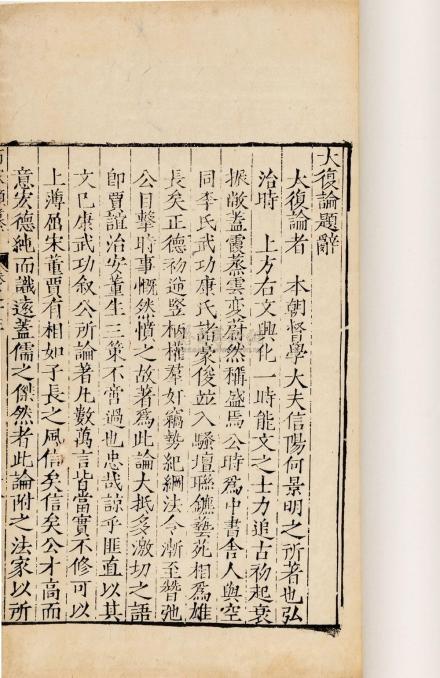 大復論題辭
大復論者　本朝督學大夫信陽何景明之所著也弘
治時　上方右文興化一時能文之士力追古初起衰
振敝蓋霞蒸雲變蔚然稱盛焉公時為中書舍人與空
同李氏武功康氏諸豪俊並入騷壇聯鑣藝苑相為雄
長矣正德初逆豎柄權羣奸竊勢紀綱法令漸至贊弛
公目擊時事慨然憤之故著為此論大抵多激切之語
卽賈誼治安董生三策不啻過也忠哉諒乎匪直以其
文已康武功叙公所論著凡數萬言皆當實不修可以
上薄屈宋董賈有相如子長之風信矣信矣公才高而
意宏德純而識遠蓋儒之傑然者此論附之法家以所